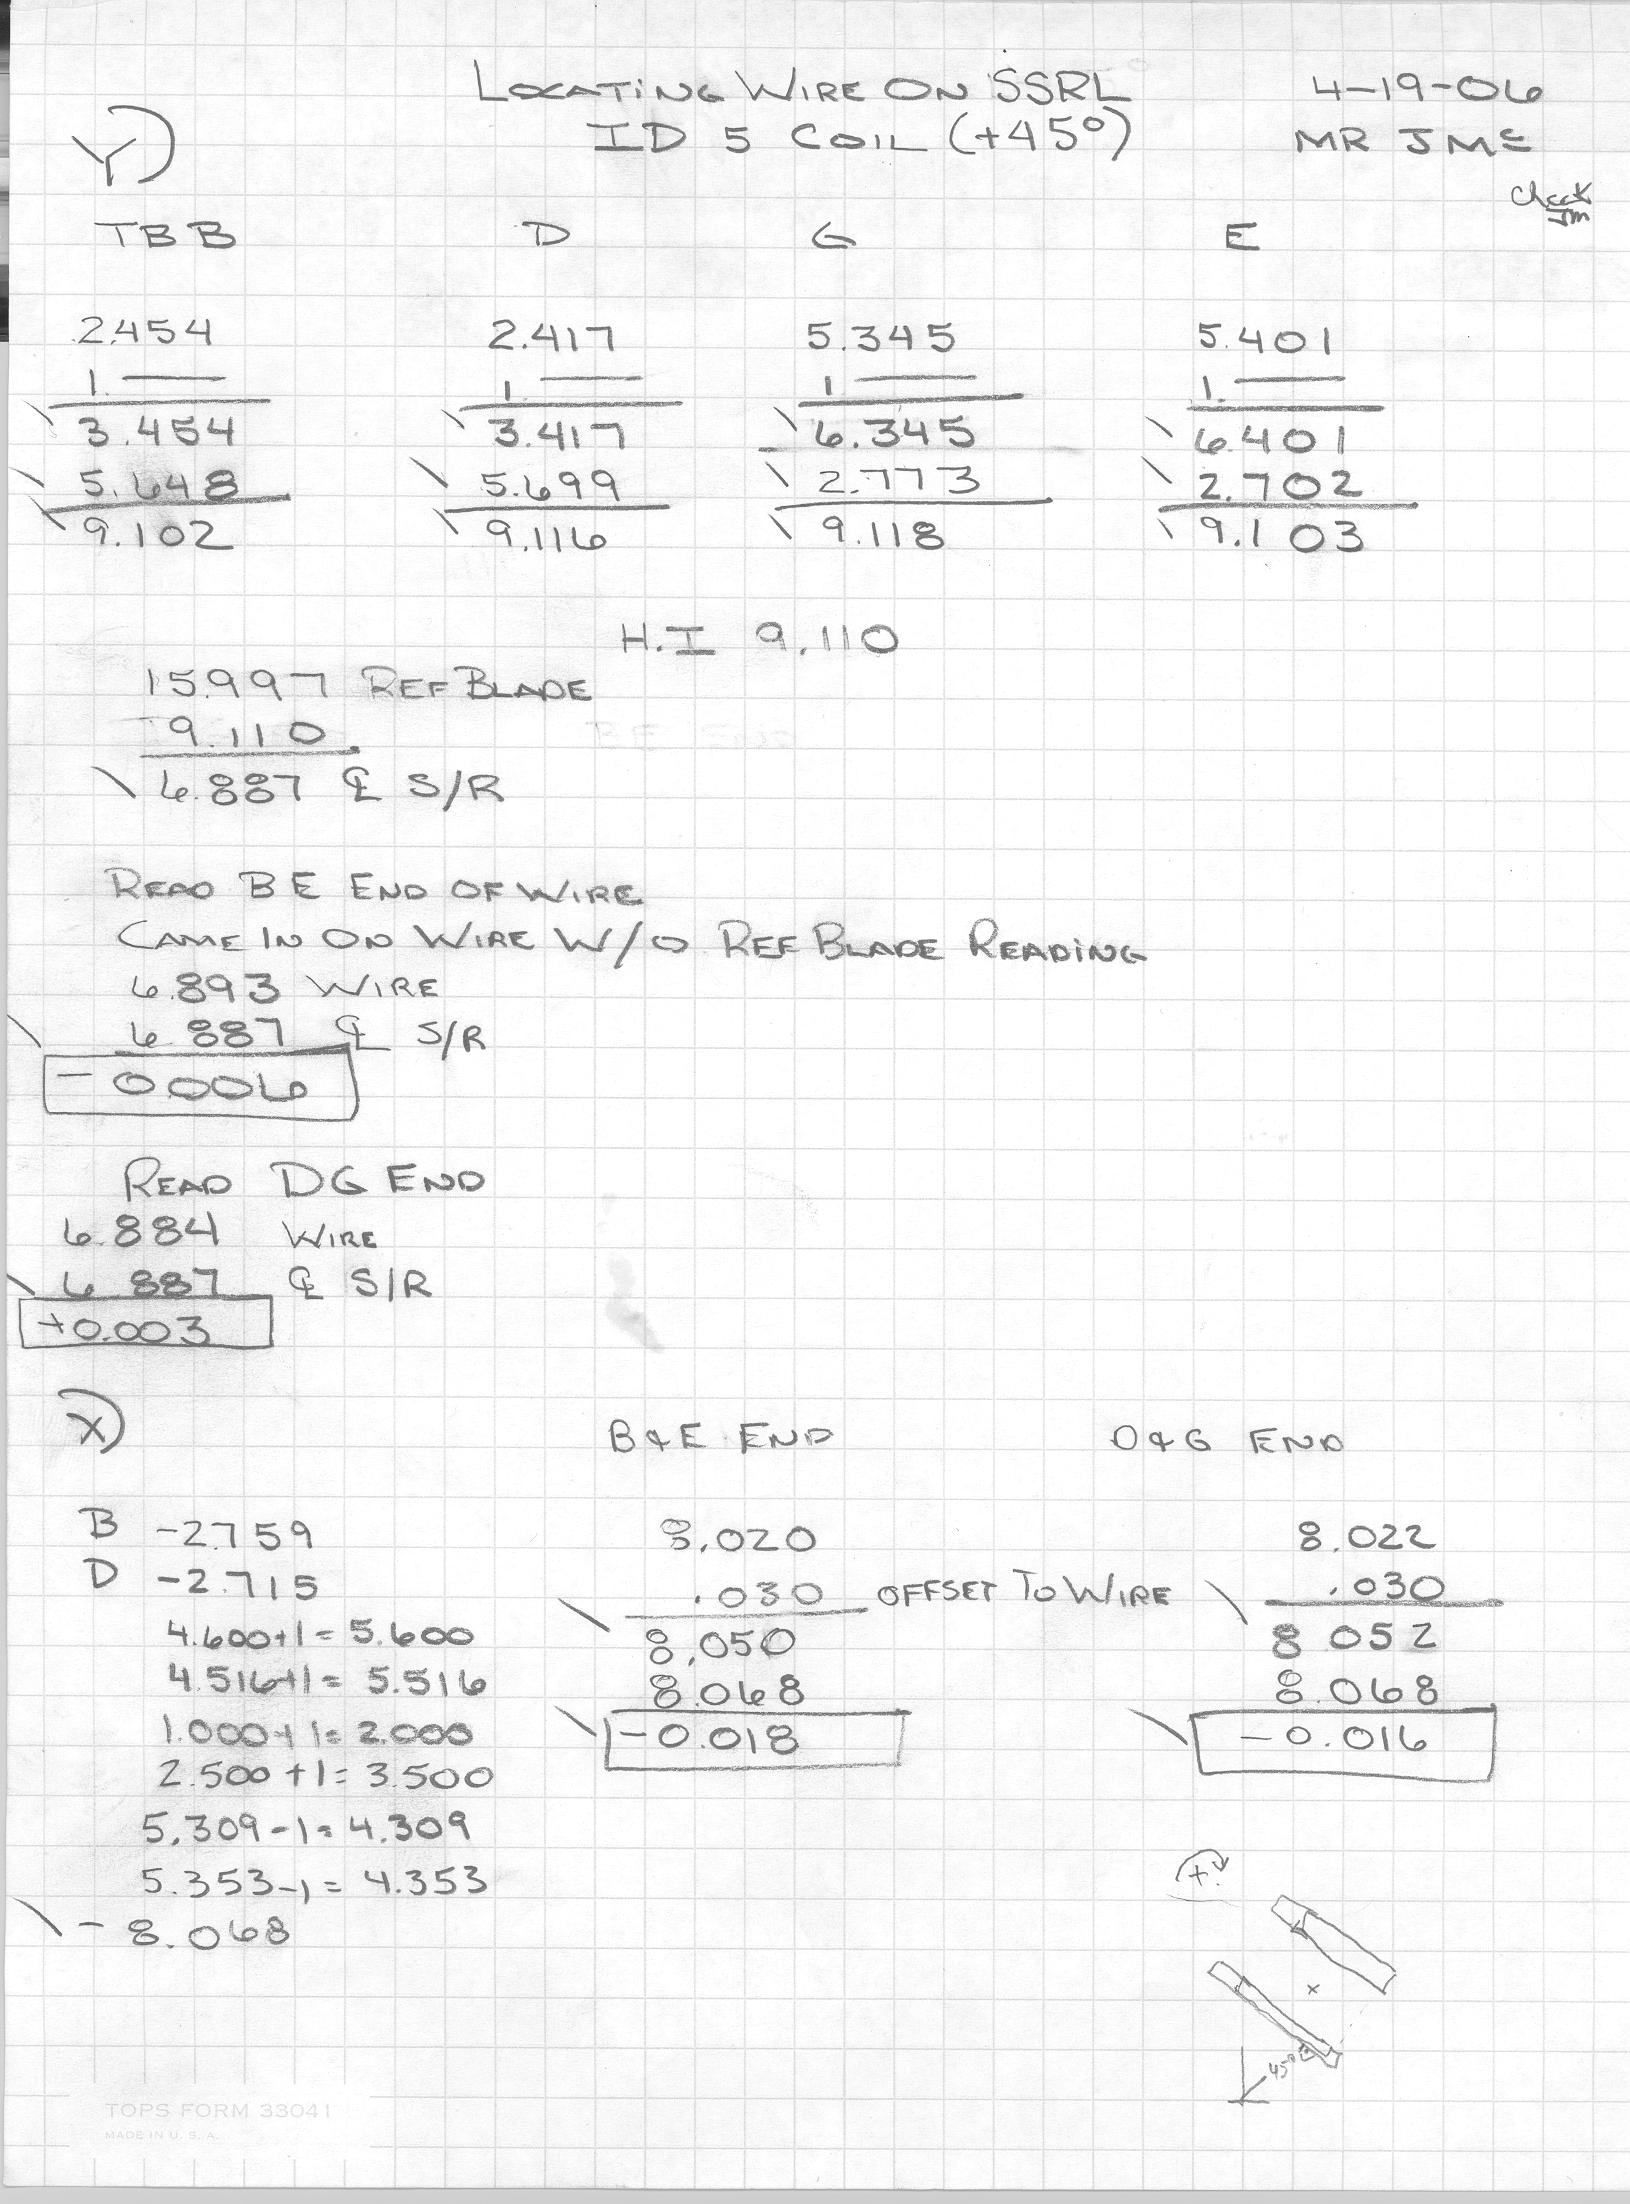 LOCATING WIRE ON SSRL 4-19-06
ID 5 COIL (+45°) MR JMC
Y)
Check
JM
TBB D G E
2.454 2.417 5.345 5.401
1.— 1.— 1.— 1.—
3.454 3.417 6.345 6.401
5.648 5.699 2.773 2.702
9.102 9.116 9.118 9.103
H.I 9.110
15.997 REF BLADE
9.110
6.887 ℄ S/R
READ BE END OF WIRE
CAME IN ON WIRE W/O REF BLADE READING
6.893 WIRE
6.887 ℄ S/R
-0.006
READ DG END
6.884 WIRE
6.887 ℄ S/R
+0.003
X)
B & E END D & G END
B -2.759 8.020 8.022
D -2.715 .030 OFFSET TO WIRE .030
4.600+1=5.600 8.050 8.052
4.516+1=5.516 8.068 8.068
1.000+1=2.000 -0.018 -0.016
2.500+1=3.500
5.309-1=4.309
5.353-1=4.353
-8.068
+
x
45°
TOPS FORM 33041
MADE IN U.S.A.